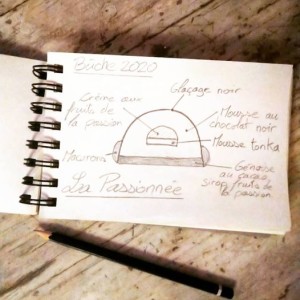 Bûche 2020
Glaçage noir
Crème aux
fruits de
la passion
Mousse au
chocolat noir
Mousse tonka
Macarons
Génoise
au cacao,
sirop fruits de
la passion
La Passionnée